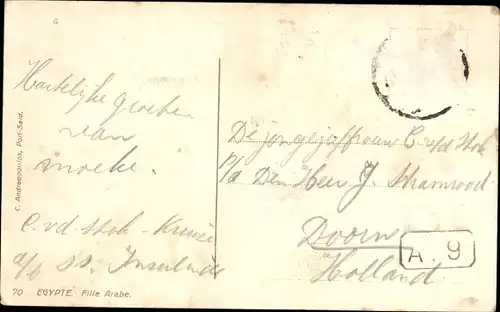 Hartelijke groeten
van
moeke.
C. vd Stok - Kruse
a/b s.s. Insulinde
De jongejuffrouw C. vd Stok
p/a Den Heer J.
Doorn
Holland
A. 9
C. Andreopoulos, Port-Said.
70 EGYPTE. Fille Arabe.